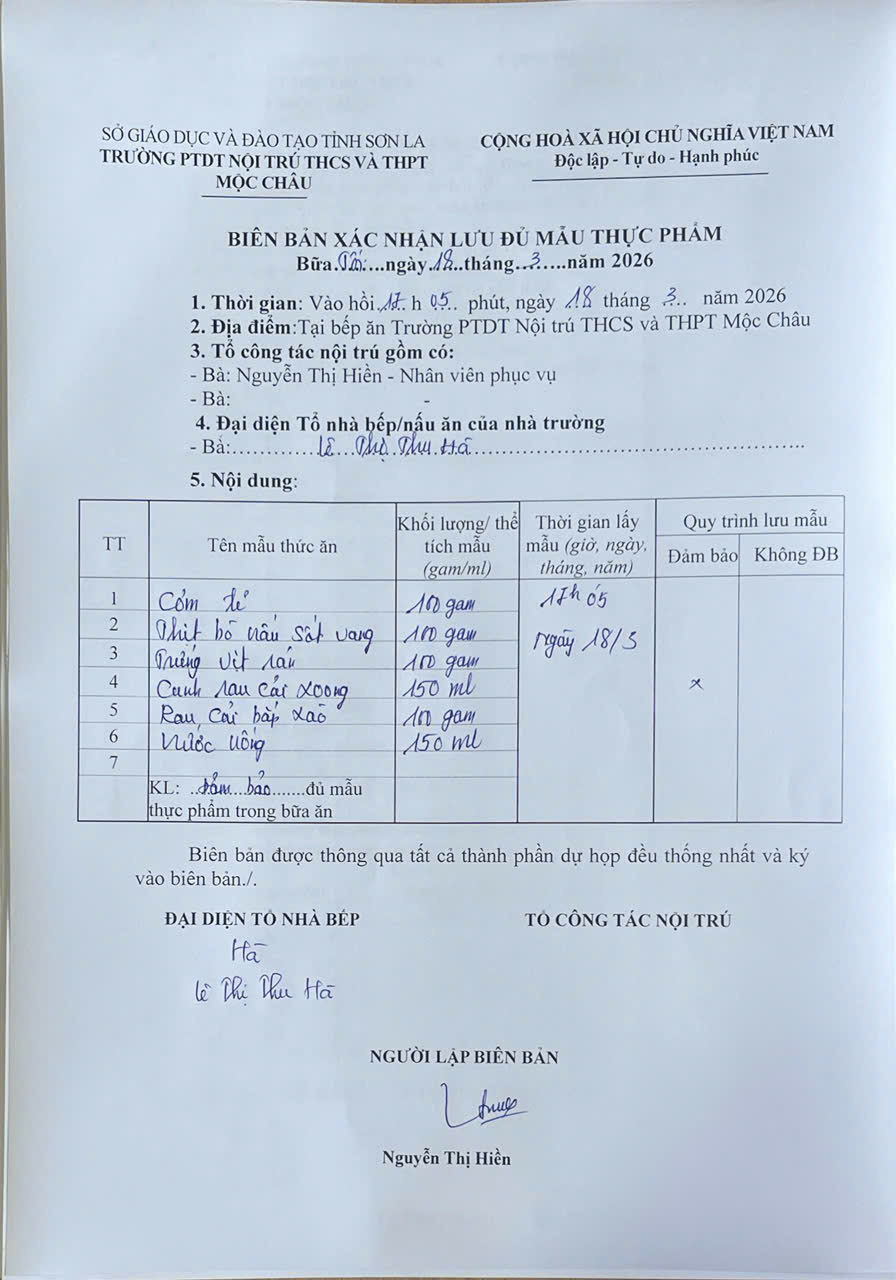 SỞ GIÁO DỤC VÀ ĐÀO TẠO TỈNH SƠN LA
TRƯỜNG PTDT NỘI TRÚ THCS VÀ THPT
MỘC CHÂU
CỘNG HOÀ XÃ HỘI CHỦ NGHĨA VIỆT NAM
Độc lập - Tự do - Hạnh phúc
BIÊN BẢN XÁC NHẬN LƯU ĐỦ MẪU THỰC PHẨM
Bữa.Tối:...ngày.18..tháng...3.....năm 2026
1. Thời gian: Vào hồi.17. h 05 phút, ngày 18 tháng 3.. năm 2026
2. Địa điểm:Tại bếp ăn Trường PTDT Nội trú THCS và THPT Mộc Châu
3. Tổ công tác nội trú gồm có:
- Bà: Nguyễn Thị Hiền - Nhân viên phục vụ
- Bà: -
4. Đại diện Tổ nhà bếp/nấu ăn của nhà trường
- Bà:............Lê...Thị..Thu..Hà..............................
5. Nội dung:
TT Tên mẫu thức ăn Khối lượng/ thể tích mẫu (gam/ml) Thời gian lấy mẫu (giờ, ngày, tháng, năm) Quy trình lưu mẫu
Đảm bảo Không ĐB
1 Cơm tẻ 100 gam 17h 05
2 Thịt bò nấu sốt vang 100 gam Ngày 18/3
3 Trứng vịt rán 100 gam
4 Canh rau cải xoong 150 ml x
5 Rau cải bắp xào 100 gam
6 Nước uống 150 ml
7
KL: ..đảm...bảo.......đủ mẫu
thực phẩm trong bữa ăn
Biên bản được thông qua tất cả thành phần dự họp đều thống nhất và ký
vào biên bản./.
ĐẠI DIỆN TỔ NHÀ BẾP
TỔ CÔNG TÁC NỘI TRÚ
Hà
Lê Thị Thu Hà
NGƯỜI LẬP BIÊN BẢN
Nguyễn Thị Hiền